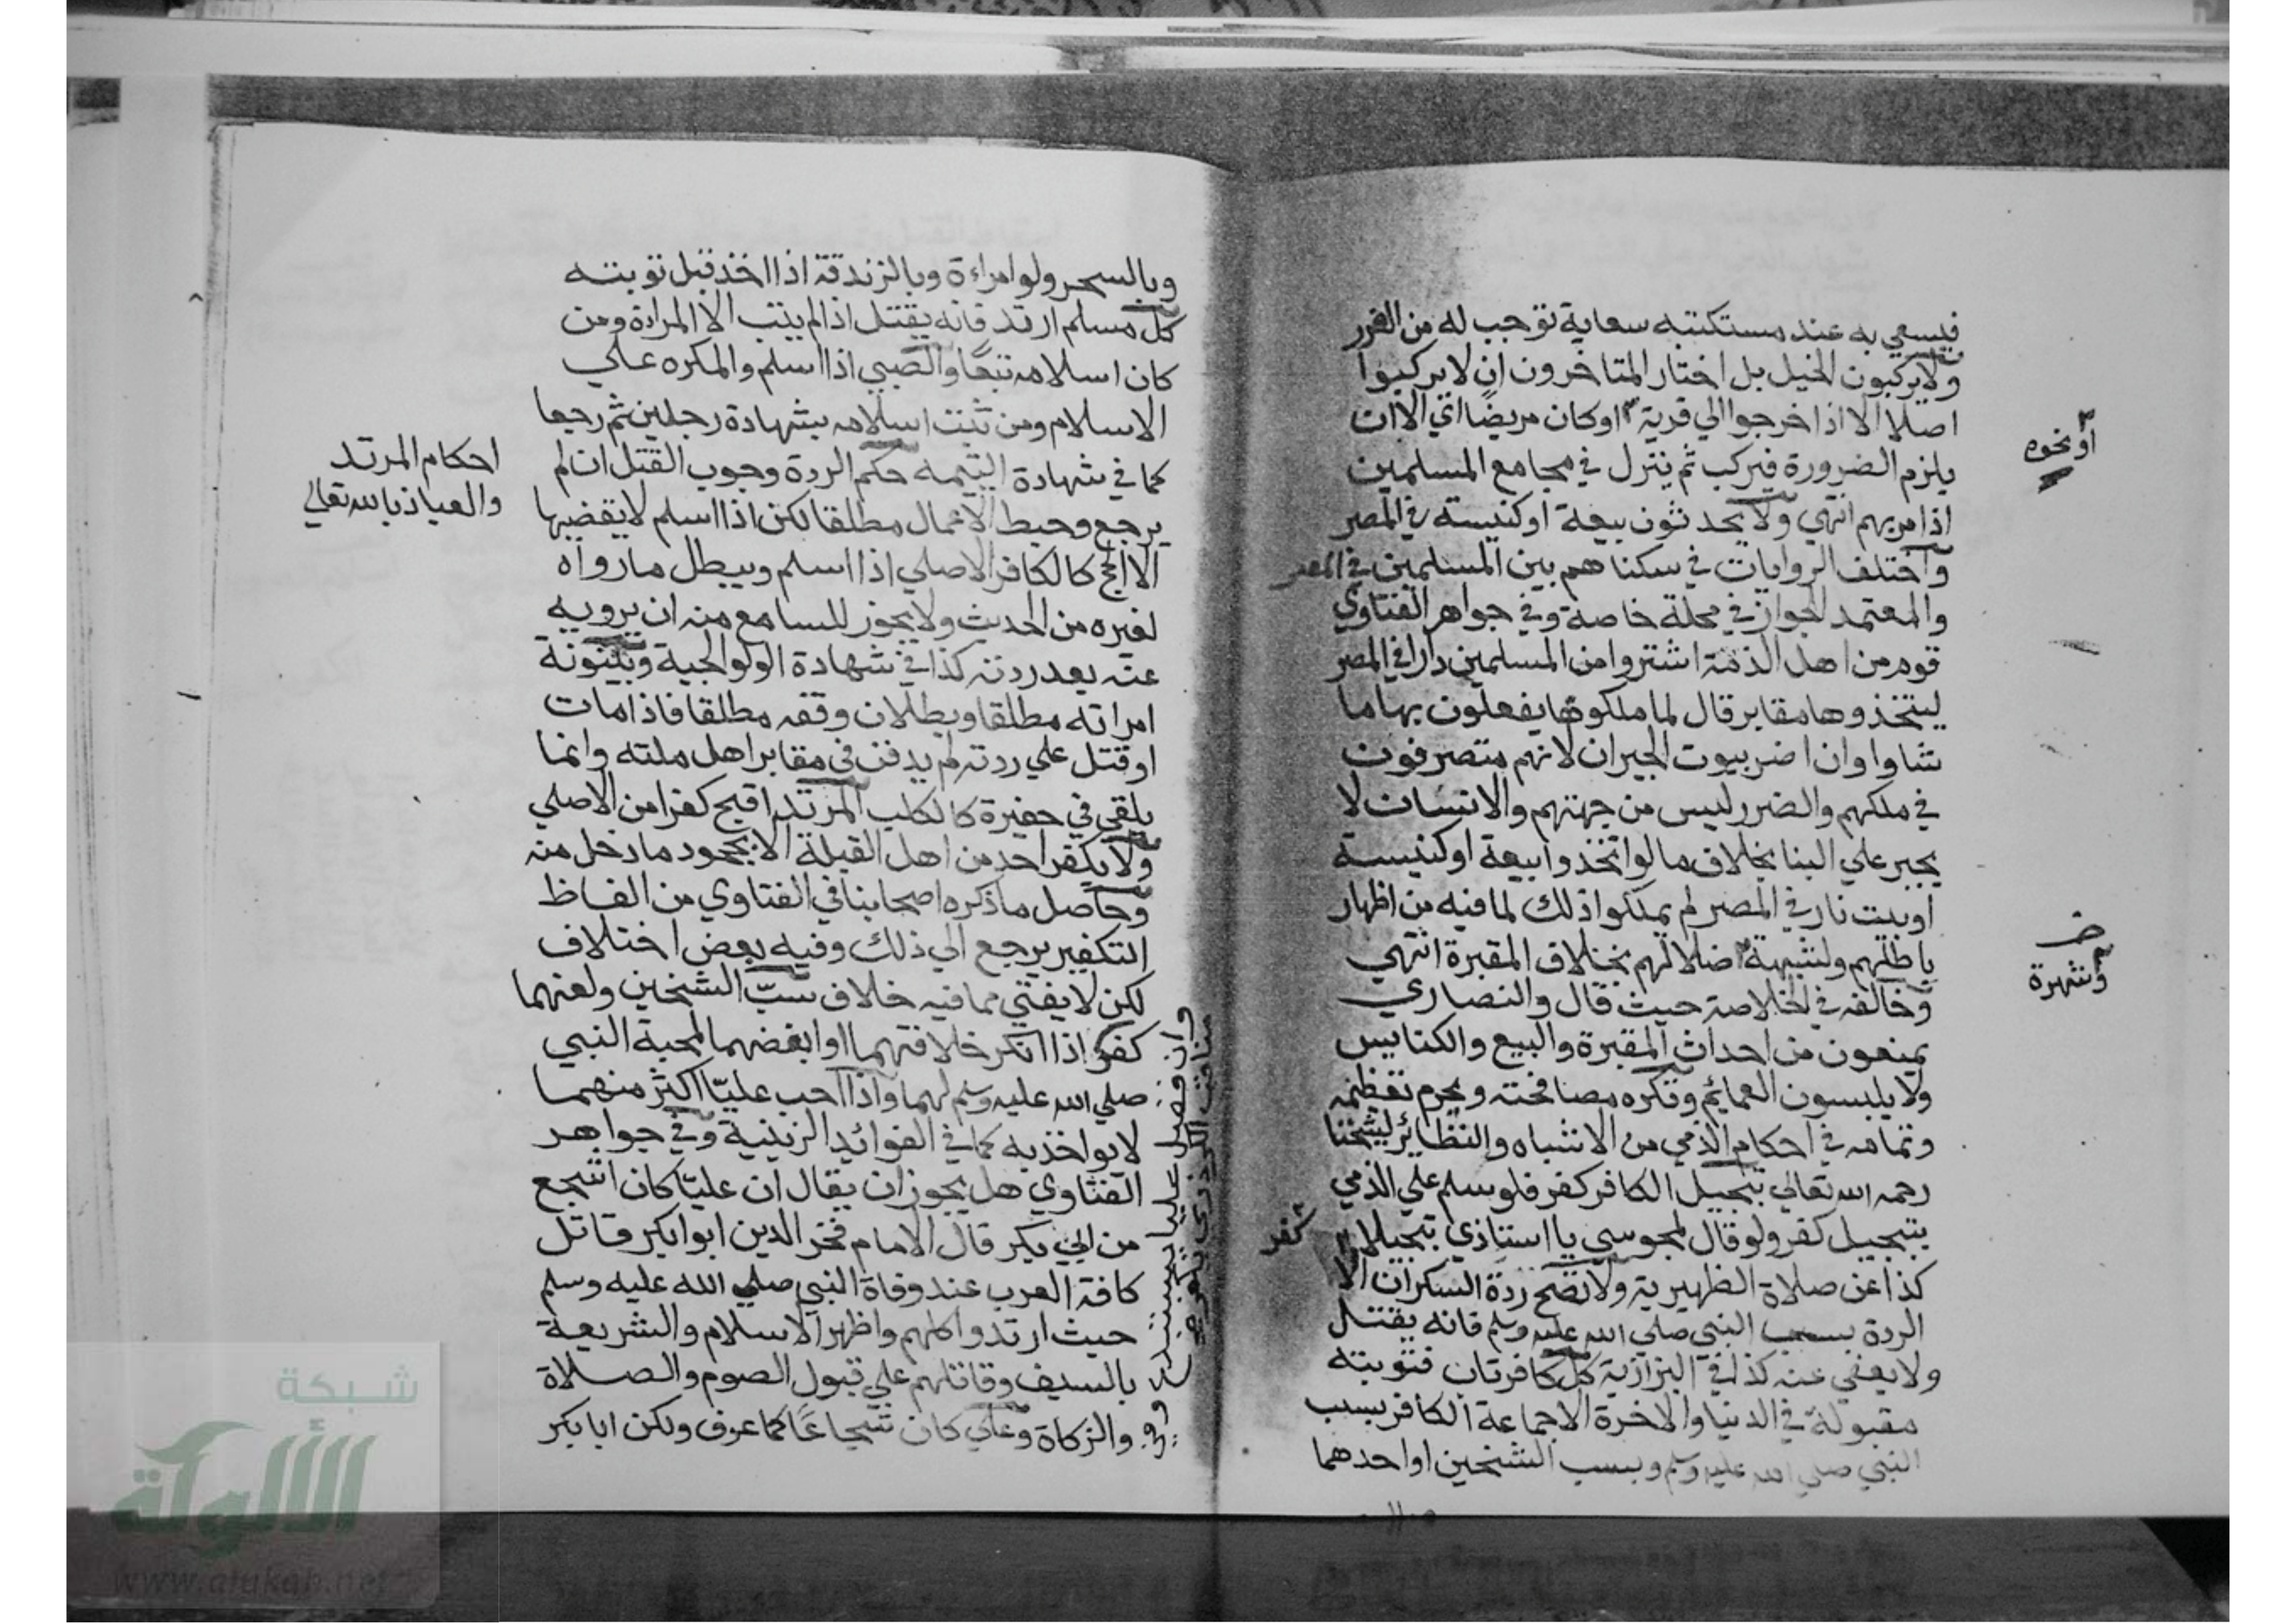 فيسعي به عند مستكتبه سعاية توجب له من الضرر
ولا يركبون الخيل بل اختار المتاخرون ان لا يركبوا
اصلا الا اذا خرجوا الي قرية او كان مريضًا اي الا ان
يلزم الضرورة فيركب ثم ينزل في مجامع المسلمين
اذا مر بهم انتهي ولا يحدثون بيعة او كنيسة في المصر
واختلف الروايات في سكناهم بين المسلمين في المصر
والمعتمد الجواز في محلة خاصة وفي جواهر الفتاوي
قوم من اهل الذمة اشتروا من المسلمين دارا في المصر
ليتخذوها مقابر قال لما ملكوها يفعلون بها ما
شاوا وان اضر ببيوت الجيران لانهم متصرفون
في ملكهم والضرر ليس من جهتهم والانسان لا
يجبر علي البنا بخلاف ما لو اتخذوا بيعة او كنيسة
او بيت نار في المصر لم يملكوا ذلك لما فيه من اظهار
باطلهم ولشبهة اضلالهم بخلاف المقبرة انتهي
وخالفه في الخلاصة حيث قال والنصاري
يمنعون من احداث المقبرة والبيع والكنايس
ولا يلبسون العمائم وتكره مصافحته ويحرم تعظيمه
وتمامه في احكام الذمي من الاشباه والنظائر لشيخنا
رحمه الله تعالي تبجيل الكافر كفر فلو سلم علي الذمي
بتبجيل كفر ولو قال لمجوسي يا استاذي تبجيلا
كذا عن صلاة الظهيرية ولا تصح ردة السكران الا
الردة بسب النبي صلي الله عليه وسلم فانه يقتل
ولا يعفي عنه كذا في البزازية كل كافر تاب فتوبته
مقبولة في الدنيا والاخرة الا جماعة الكافر بسب
النبي صلي الله عليه وسلم وبسب الشيخين او احدهما
او نحوه
وشهرة
كفر
وبالسحر ولو امراءة وبالزندقة اذا اخذ قبل توبته
كل مسلم ارتد فانه يقتل اذا لم يتب الا المراة ومن
كان اسلامه تبعًا والصبي اذا اسلم والمكره علي
الاسلام ومن ثبت اسلامه بشهادة رجلين ثم رجعا
كما في شهادة اليتيمه حكم الردة وجوب القتل ان لم
يرجع وحبط الاعمال مطلقا لكن اذا اسلم لا يقضيها
الا الحج كالكافر الاصلي اذا اسلم ويبطل ما رواه
لغيره من الحديث ولا يجوز للسامع منه ان يرويه
عنه بعد ردته كذا في شهادة الولوالجية وبينونة
امراته مطلقا وبطلان وقفه مطلقا فاذا مات
او قتل علي ردته لم يدفن في مقابر اهل ملته وانما
يلقي في حفيرة كالكلب المرتد اقبح كفرا من الاصلي
ولا يكفر احد من اهل القبلة الا بجحود ما دخل منه
وحاصل ما ذكره اصحابنا في الفتاوي من الفاظ
التكفير يرجع الي ذلك وفيه بعض اختلاف
لكن لا يفتي مما فيه خلاف سبّ الشيخين ولعنهما
كفر اذا انكر خلافتهما او ابغضهما لمحبة النبي
صلي الله عليه وسلم لهما واذا احب عليّا اكثر منهما
لا يواخذ به كما في الفوائد الزينية وفي جواهر
الفتاوي هل يجوز ان يقال ان عليّا كان اشجع
من ابي بكر قال الامام فخر الدين ابو ابكر قاتل
كافة العرب عند وفاة النبي صلي الله عليه وسلم
حيث ارتدوا كلهم واظهر الاسلام والشريعة
بالسيف وقاتلهم علي قبول الصوم والصلاة
والزكاة وعلي كان شجاعًا كما عرف ولكن ابا بكر
احكام المرتد
والعياذ بالله تعالي
شبكة
الألوكة
www.alukah.net